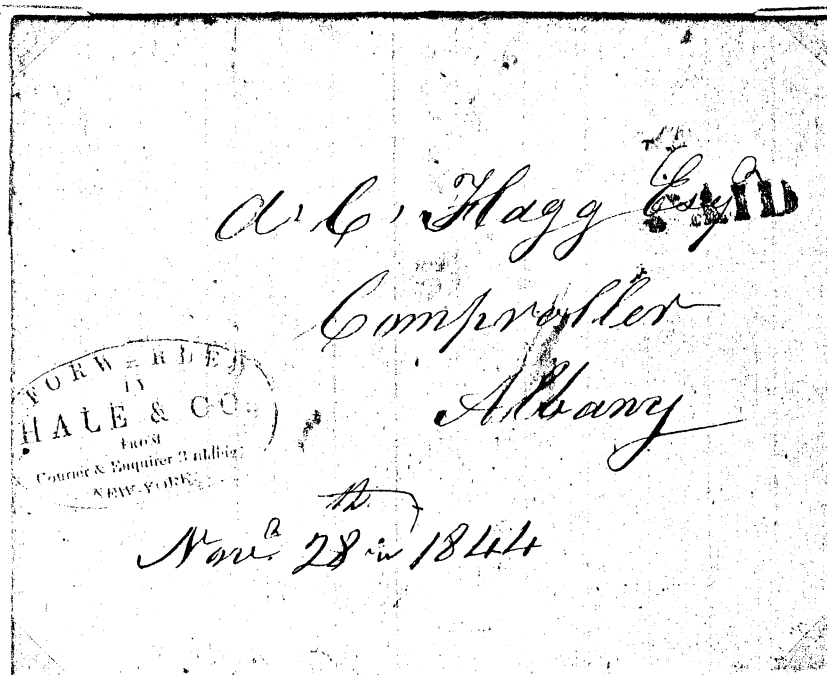 A. C. Flagg Esqr
PAID
Comptroller
Albany
FORWARDED
BY
HALE & CO.
FROM
Courier & Enquirer Building
NEW-YORK
Novr 28th 1844